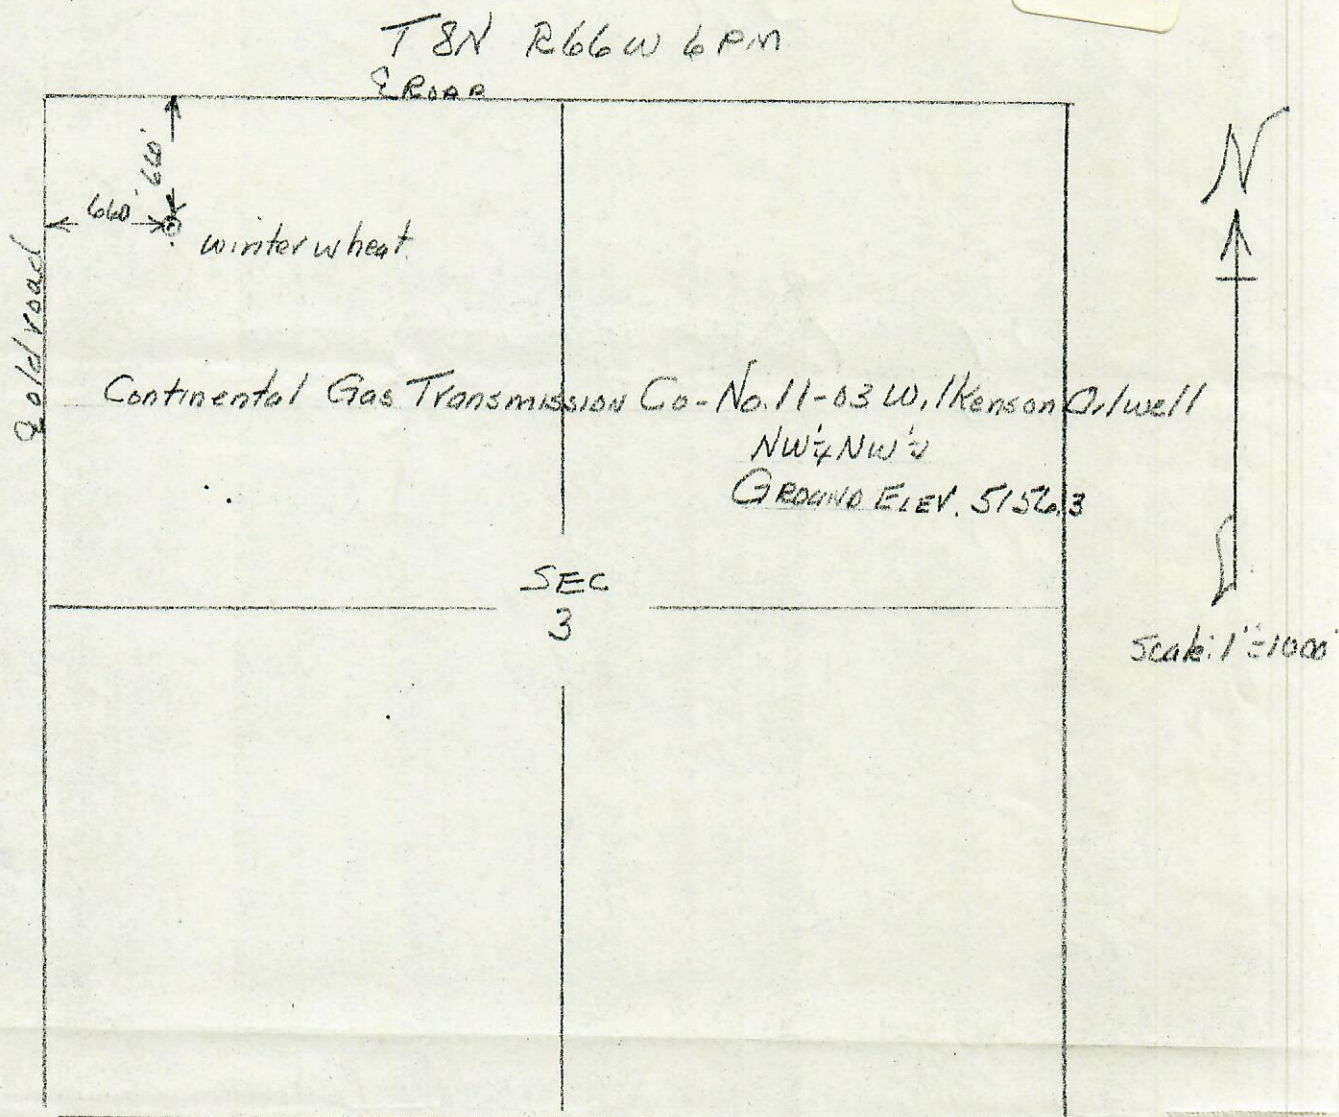 T 8N R66W 6PM
℄ ROAD
660'
660'
winter wheat.
℄ old road
Continental Gas Transmission Co-No.11-03 Wilkenson Oilwell
NW¼NW¼
GROUND ELEV. 5156.3
SEC
3
N
Scale: 1"=1000'